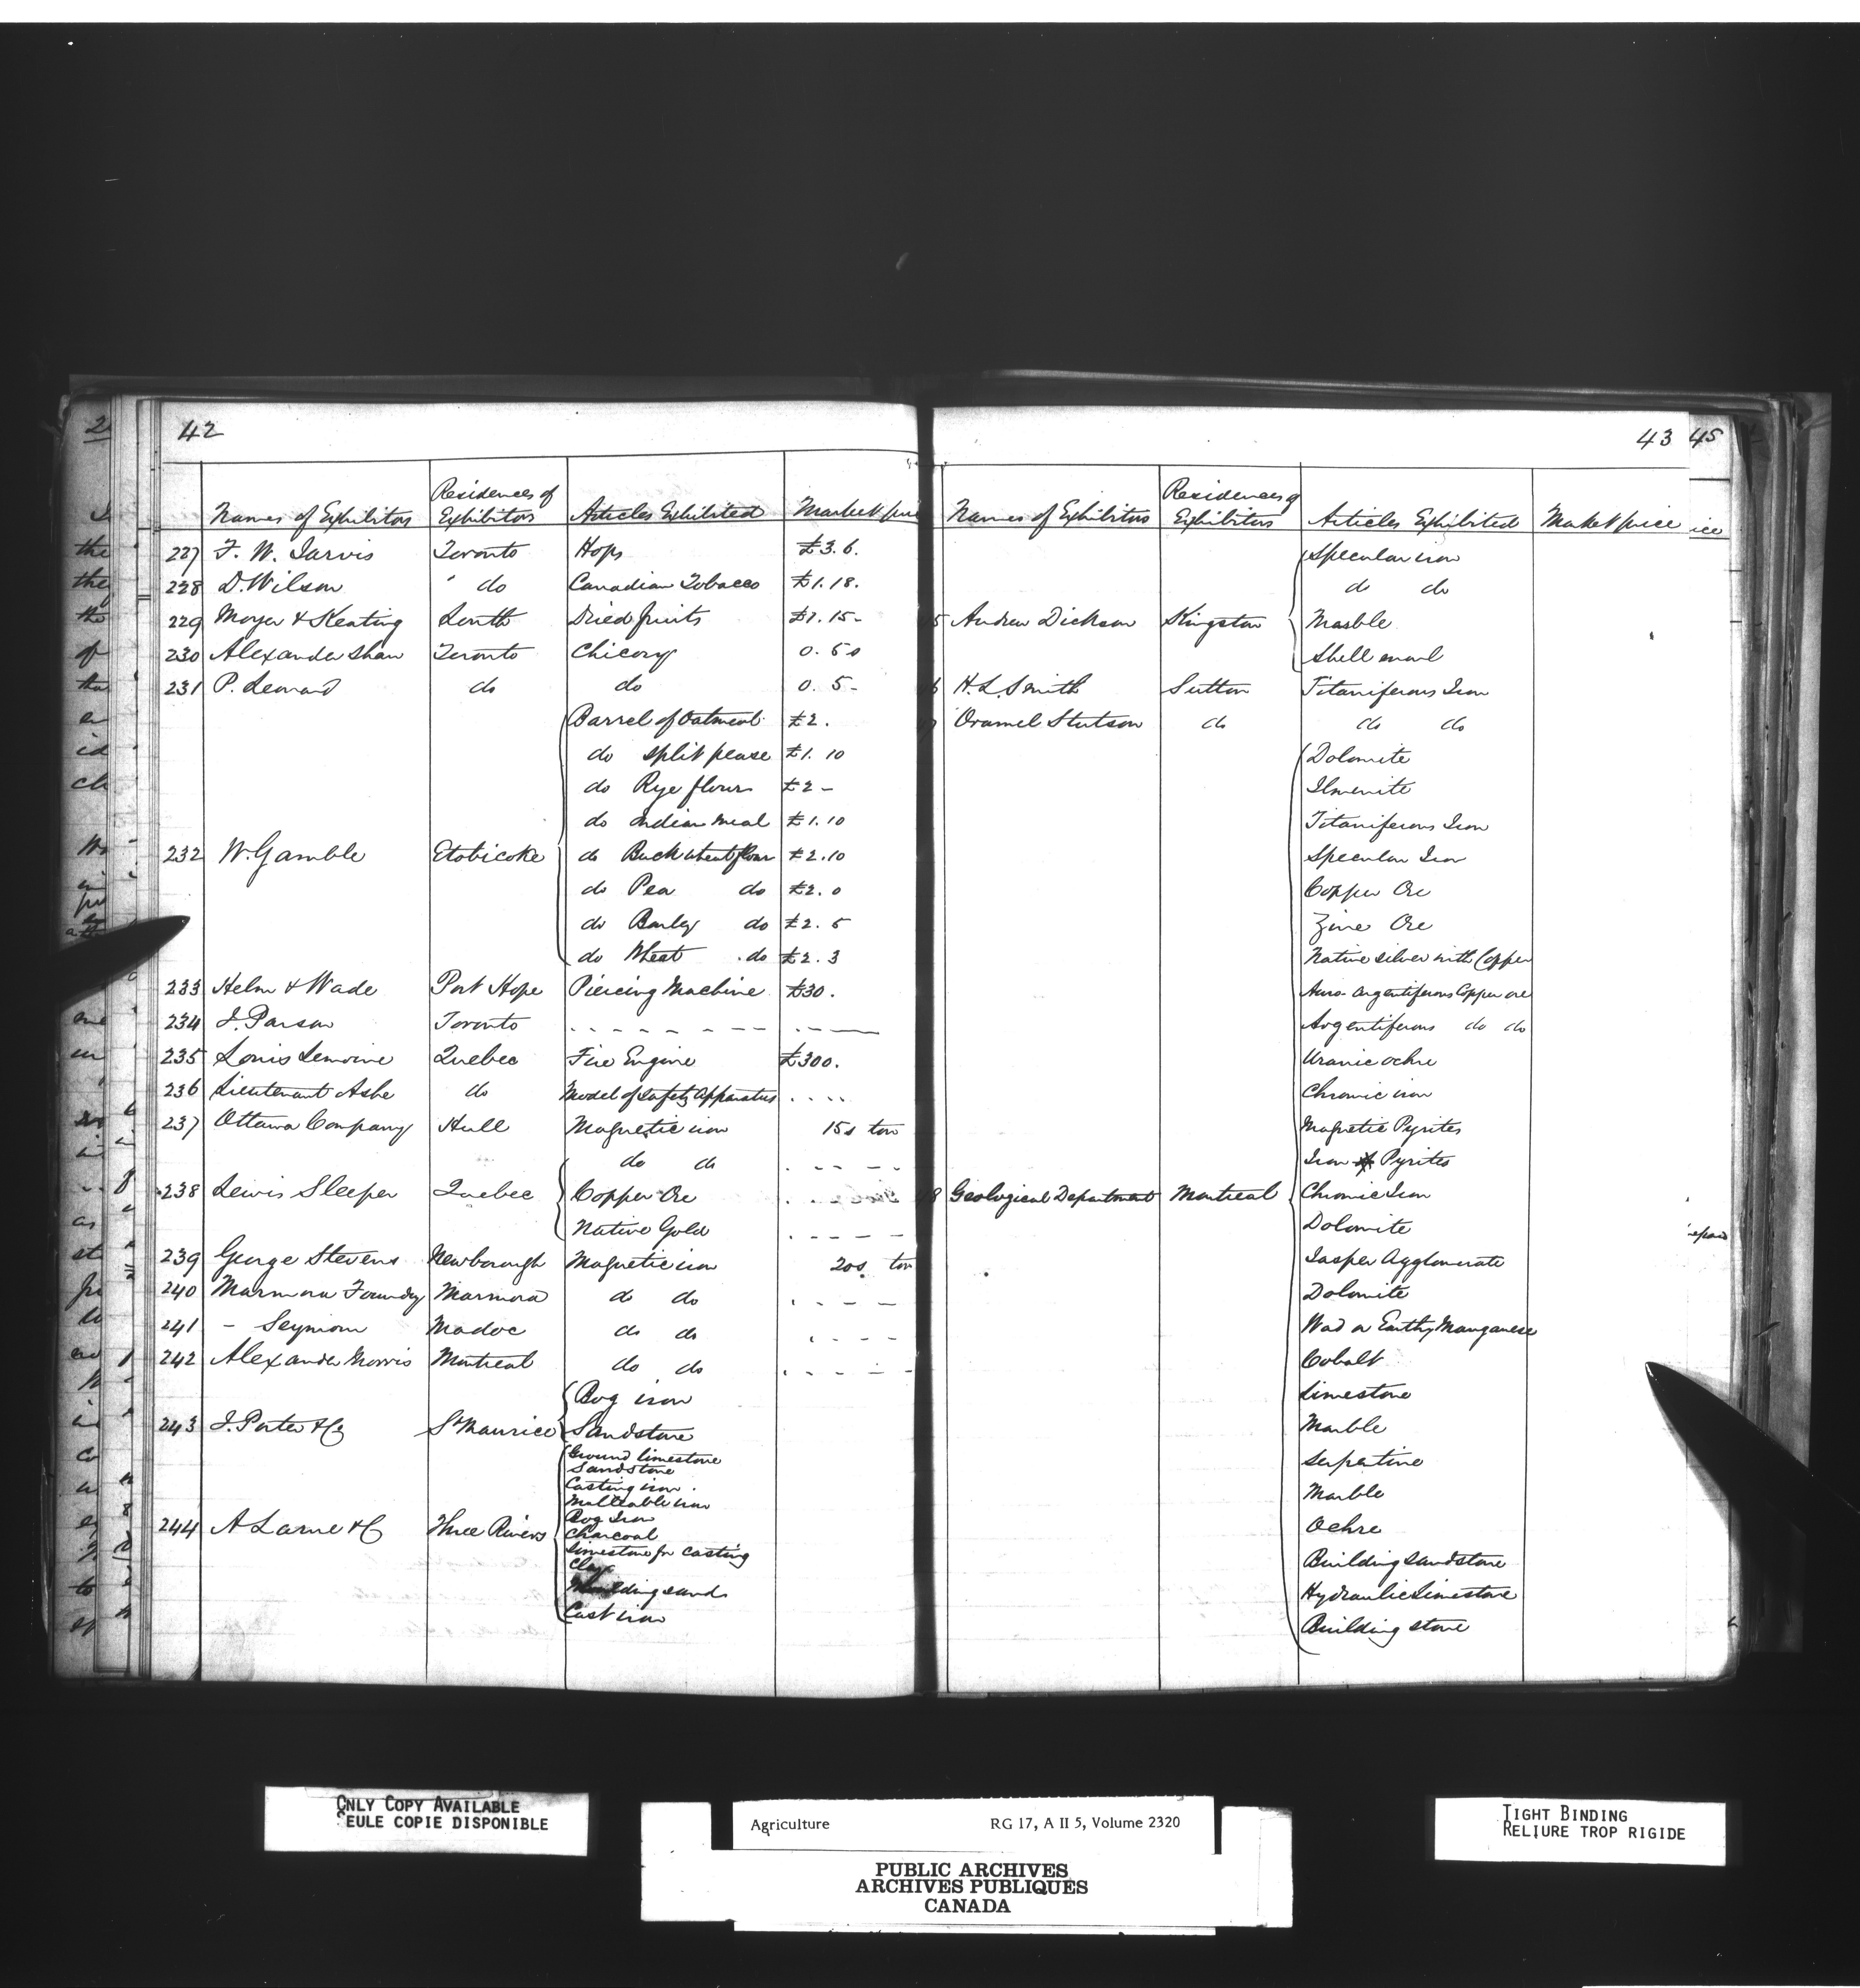 42
Names of Exhibitors Residences of Exhibitors Articles Exhibited Market
227 F. W. Jarvis Toronto Hops £3.6.
228 D. Wilson do Canadian Tobacco £1.18.
229 Moyer & Keating Louth Dried fruits £1.15-
230 Alexander Shaw Toronto Chicory 0.
231 P. Leonard do do 0. 5-
Barrel of Oatmeal £2.
do split pease £1. 10
do Rye flour £2-
do Indian meal £1.10
232 W. Gamble Etobicoke do Buckwheat flour £2.10
do Pea do £2. 0
do Barley do £2. 5
do Wheat do £2. 3
233 Helm & Wade Port Hope Piercing Machine £30.
234 J. Parson Toronto
235 Louis Lemoine Quebec Fire Engine £300.
236 Lieutenant Ashe do Model of Safety Apparatus
237 Ottawa Company Hull Magnetic iron 15s ton
do do
238 Lewis Sleeper Quebec Copper Ore
Native Gold
239 George Stevens Newborough Magnetic iron 20s. ton
240 Marmora Foundry Marmora do do
241 - Seymour Madoc do do
242 Alexander Morris Montreal do do
Bog iron
243 J. Porter & Co St Maurice Sandstone
Ground limestone
Sandstone
Casting iron
Malleable iron
Bog Iron
244 A Larue & C Three Rivers Charcoal
Limestone for casting
Clay
Moulding sand
Cast iron
43
Names of Exhibitors Residences of Exhibitors Articles Exhibited Market price
Specular iron
do do
5 Andrew Dickson Kingston Marble
Shell marl
6 H. L. Smith Sutton Titaniferous Iron
Oramel Stutson do do do
Dolomite
Ilmenite
Titaniferous Iron
Specular Iron
Copper Ore
Zinc Ore
Native silver with Copper
Auro-argentiferous Copper ore
Argentiferous do do
Uranic ochre
Chromic iron
Magnetic Pyrites
Iron Pyrites
8 Geological Department Montreal Chromic Iron
Dolomite
Jasper Agglomerate
Dolomite
Wad or Earthy Manganese
Cobalt
Limestone
Marble
Serpentine
Marble
Ochre
Building sandstone
Hydraulic Limestone
Building stone
45
ice
ONLY COPY AVAILABLE
SEULE COPIE DISPONIBLE
Agriculture RG 17, A II 5, Volume 2320
PUBLIC ARCHIVES
ARCHIVES PUBLIQUES
CANADA
TIGHT BINDING
RELIURE TROP RIGIDE